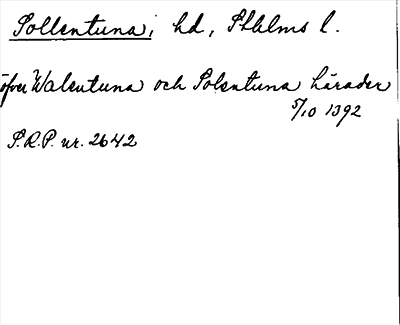 Sollentuna, hd, Sthlms l.
öfver Walentuna och Solentuna härader
5/10 1392
S.R.P. nr. 2642